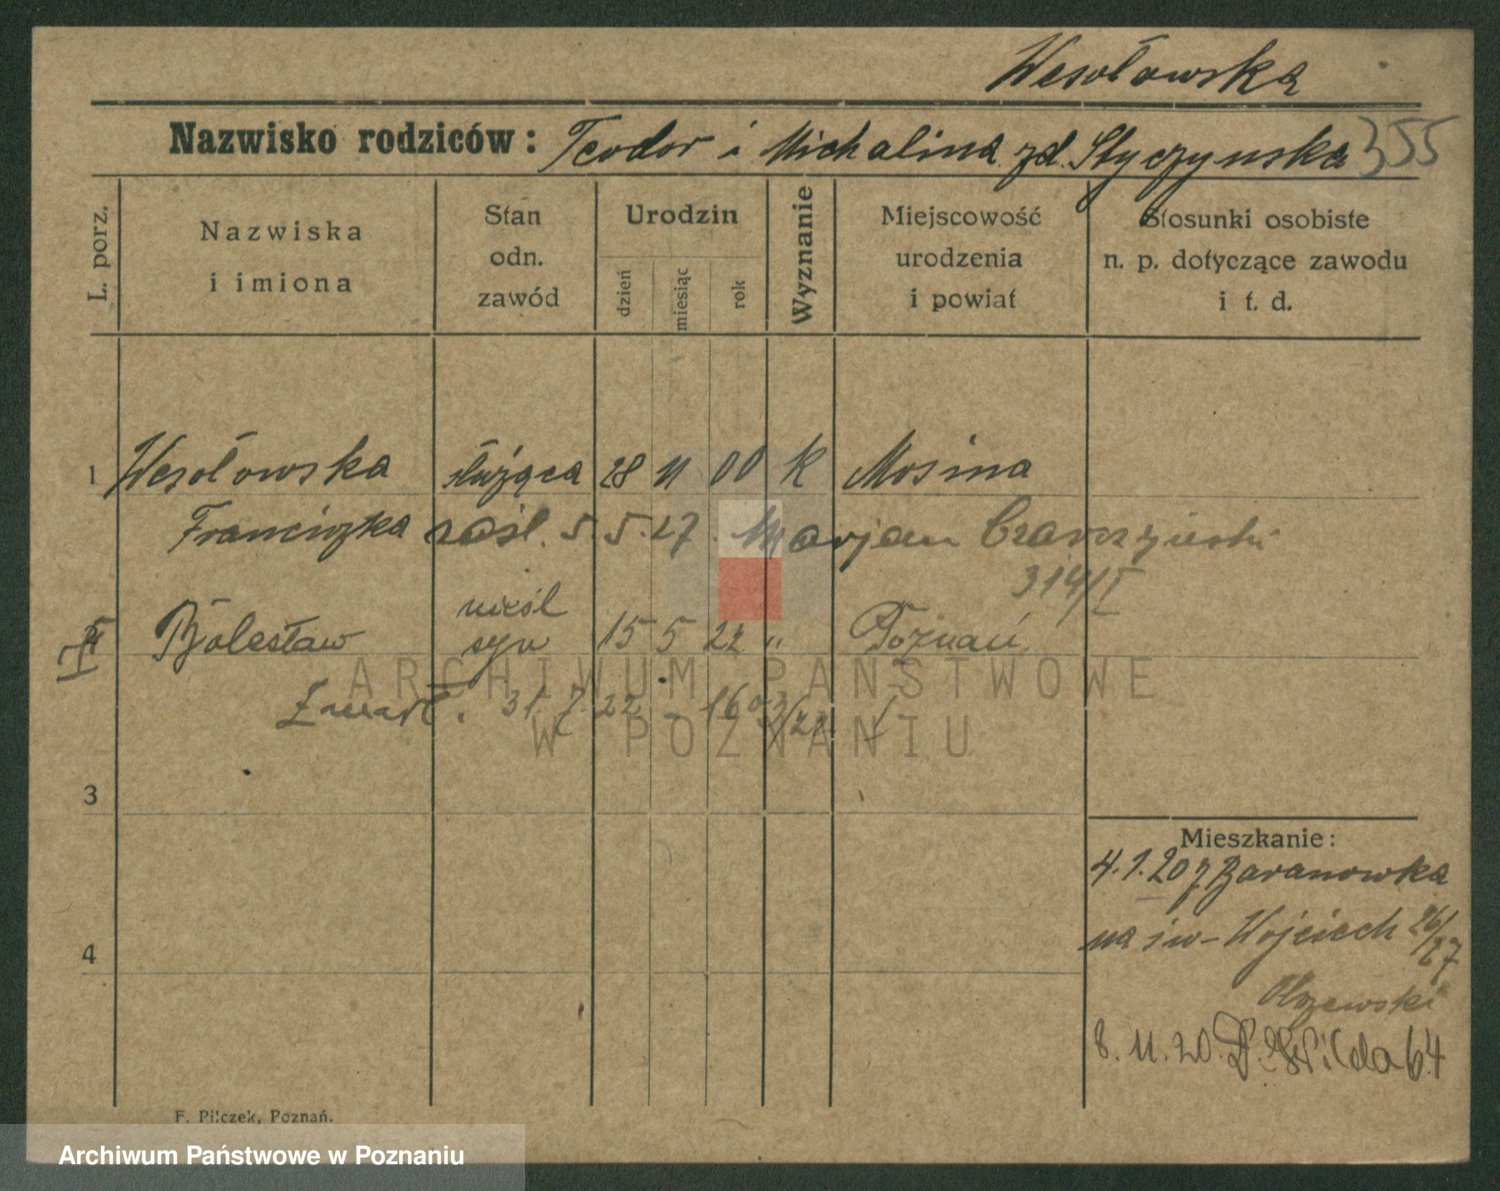 Wesołowska
Nazwisko rodziców: Teodor i Michalina zd. Styczynska 355
L. porz.
Nazwiska i imiona
Stan odn. zawód
Urodzin
dzień
miesiąc
rok
Wyznanie
Miejscowość urodzenia i powiat
Stosunki osobiste n. p. dotyczące zawodu i t. d.
1 Wesołowska służąca 28 11 00 K Mosina
Franciszka zaśl. 5.5.27. Marjan
314/I
nieśl
Bolesław syn 15 5 22 " Poznań
Zmarł. 31.7.22
3
4
Mieszkanie:
4.1.20 z Baranowka
na św-Wojciech 26/27
8.11.20. D. Wilda 64
F. Pilczek, Poznań.
ARCHIWUM PAŃSTWOWE
W POZNANIU
Archiwum Państwowe w Poznaniu